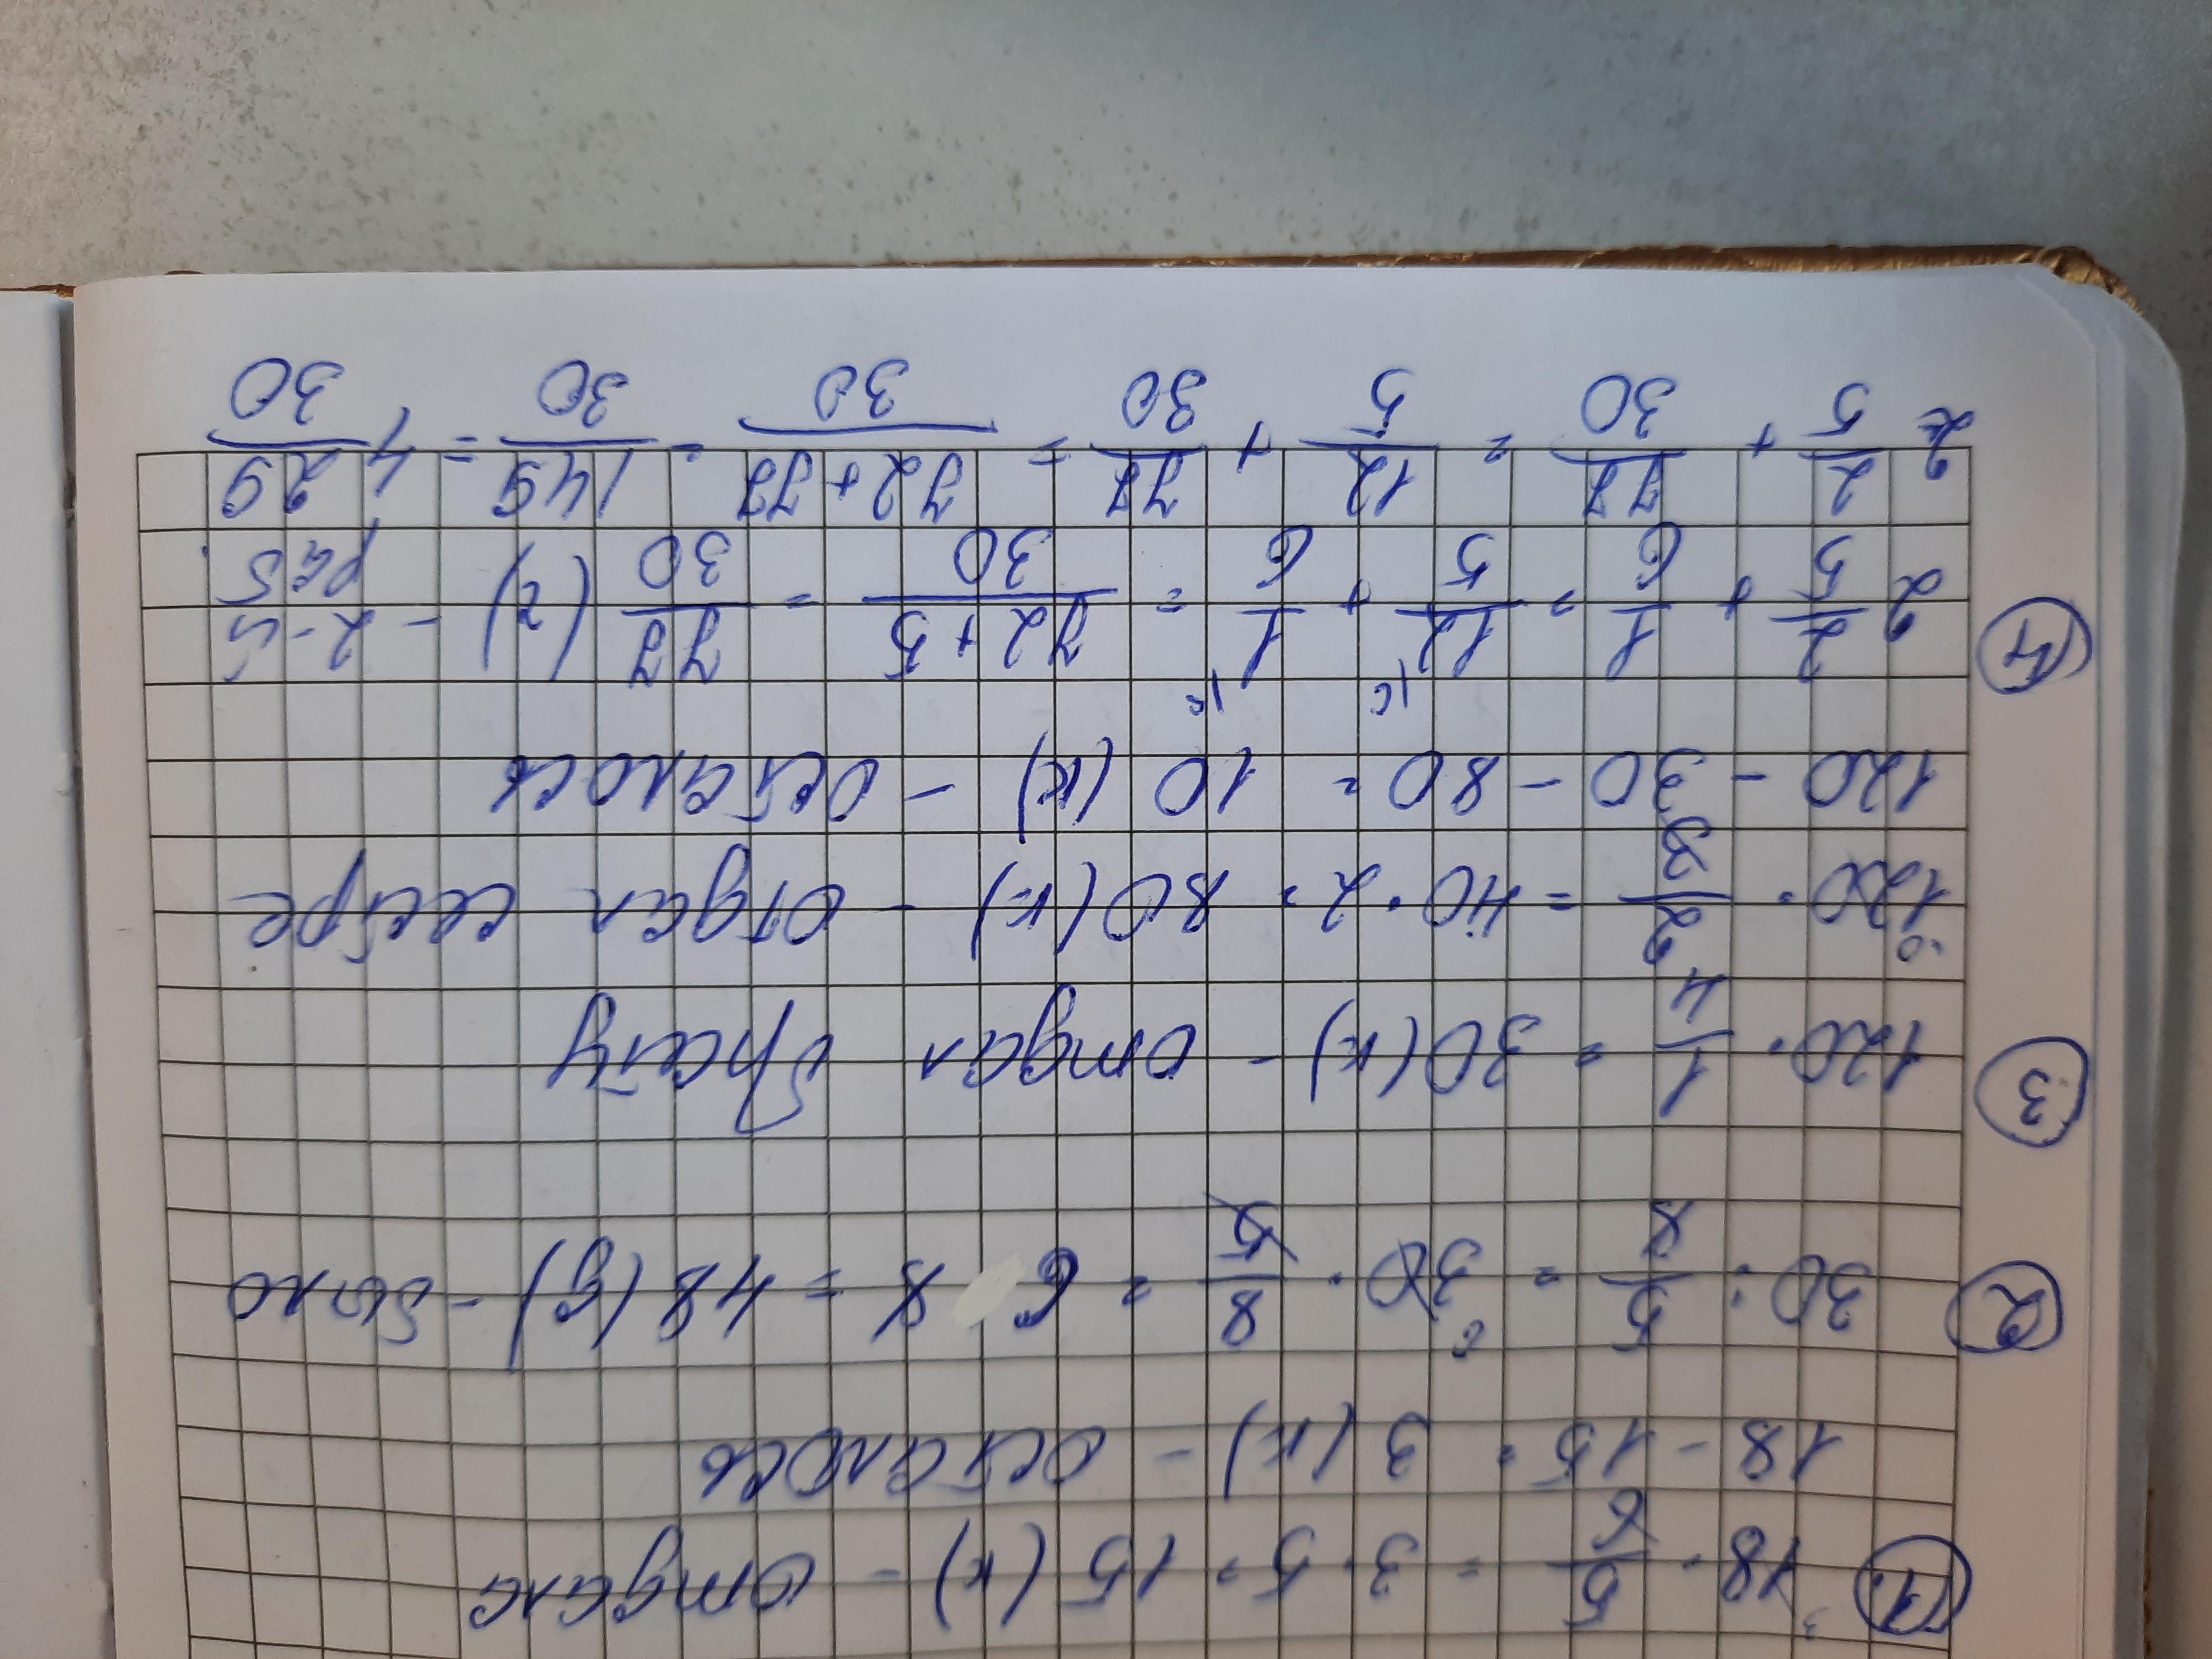 1. 18 · 5/6 = 3 · 5 = 15 (к) - отдала
18 - 15 = 3 (к) - осталось
2 30 : 5/8 = 30 · 8/5 = 6 8 = 48 (д) - было
3 120 · 1/4 = 30 (к) - отдал брату
120 · 2/3 = 40 · 2 = 80 (к) - отдал сестре
120 - 30 - 80 = 10 (к) - осталось
4 2 2/5 + 1/6 = 12/5 + 1/6 = 72+5/30 = 77/30 (г) - 2-й раб.
2 2/5 + 77/30 = 12/5 + 77/30 = 72+77/30 = 149/30 = 4 29/30